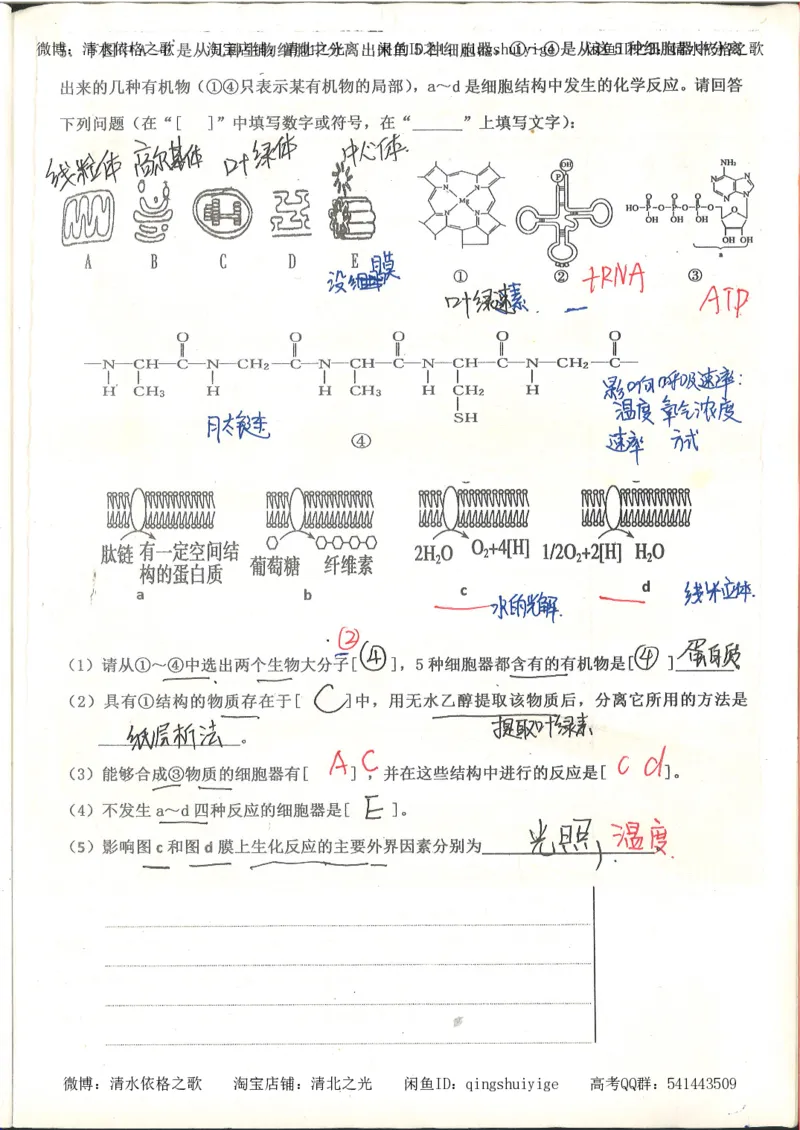 微博：清水依格之歌
出来的几种有机物（①④只表示某有机物的局部），a～d是细胞结构中发生的化学反应。请回答
下列问题（在“[　]”中填写数字或符号，在“______”上填写文字）：
线粒体 高尔基体 叶绿体 中心体.
A B C D E
没细胞膜
Mg N N N N
① 叶绿素.
P OH
② tRNA
NH₂ N N N N
HO—P—O—P—O—P—O O O O O
OH OH OH OH OH
a
③ ATP
O O O O O
—N—CH—C—N—CH₂—C—N—CH—C—N—CH—C—N—CH₂—C—
H CH₃ H H CH₃ H CH₂ H
SH
肽链
④
影响呼吸速率：
温度 氧气浓度
速率 方式
肽链 有一定空间结
构的蛋白质
a
葡萄糖 纤维素
b
2H₂O O₂+4[H]
c
水的光解.
1/2O₂+2[H] H₂O
d
线粒体.
②
（1）请从①～④中选出两个生物大分子[ ④ ]，5种细胞器都含有的有机物是[ ④ ] 蛋白质
（2）具有①结构的物质存在于[ C ]中，用无水乙醇提取该物质后，分离它所用的方法是
纸层析法 。 提取叶绿素
（3）能够合成③物质的细胞器有[ A C ]，并在这些结构中进行的反应是[ c d ]。
（4）不发生a～d四种反应的细胞器是[ E ]。
（5）影响图c和图d膜上生化反应的主要外界因素分别为 光照, 温度.
微博：清水依格之歌 淘宝店铺：清北之光 闲鱼ID：qingshuiyige 高考QQ群：541443509